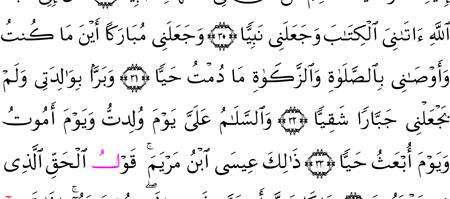 اللَّهِ ءَاتَىٰنِيَ الْكِتَٰبَ وَجَعَلَنِي نَبِيًّا ﴿٣٠﴾ وَجَعَلَنِي مُبَارَكًا أَيْنَ مَا كُنتُ
وَأَوْصَٰنِي بِالصَّلَوٰةِ وَالزَّكَوٰةِ مَا دُمْتُ حَيًّا ﴿٣١﴾ وَبَرًّا بِوَٰلِدَتِي وَلَمْ
يَجْعَلْنِي جَبَّارًا شَقِيًّا ﴿٣٢﴾ وَالسَّلَٰمُ عَلَيَّ يَوْمَ وُلِدتُّ وَيَوْمَ أَمُوتُ
وَيَوْمَ أُبْعَثُ حَيًّا ﴿٣٣﴾ ذَٰلِكَ عِيسَى ابْنُ مَرْيَمَ ۚ قَوْلُ الْحَقِّ الَّذِي